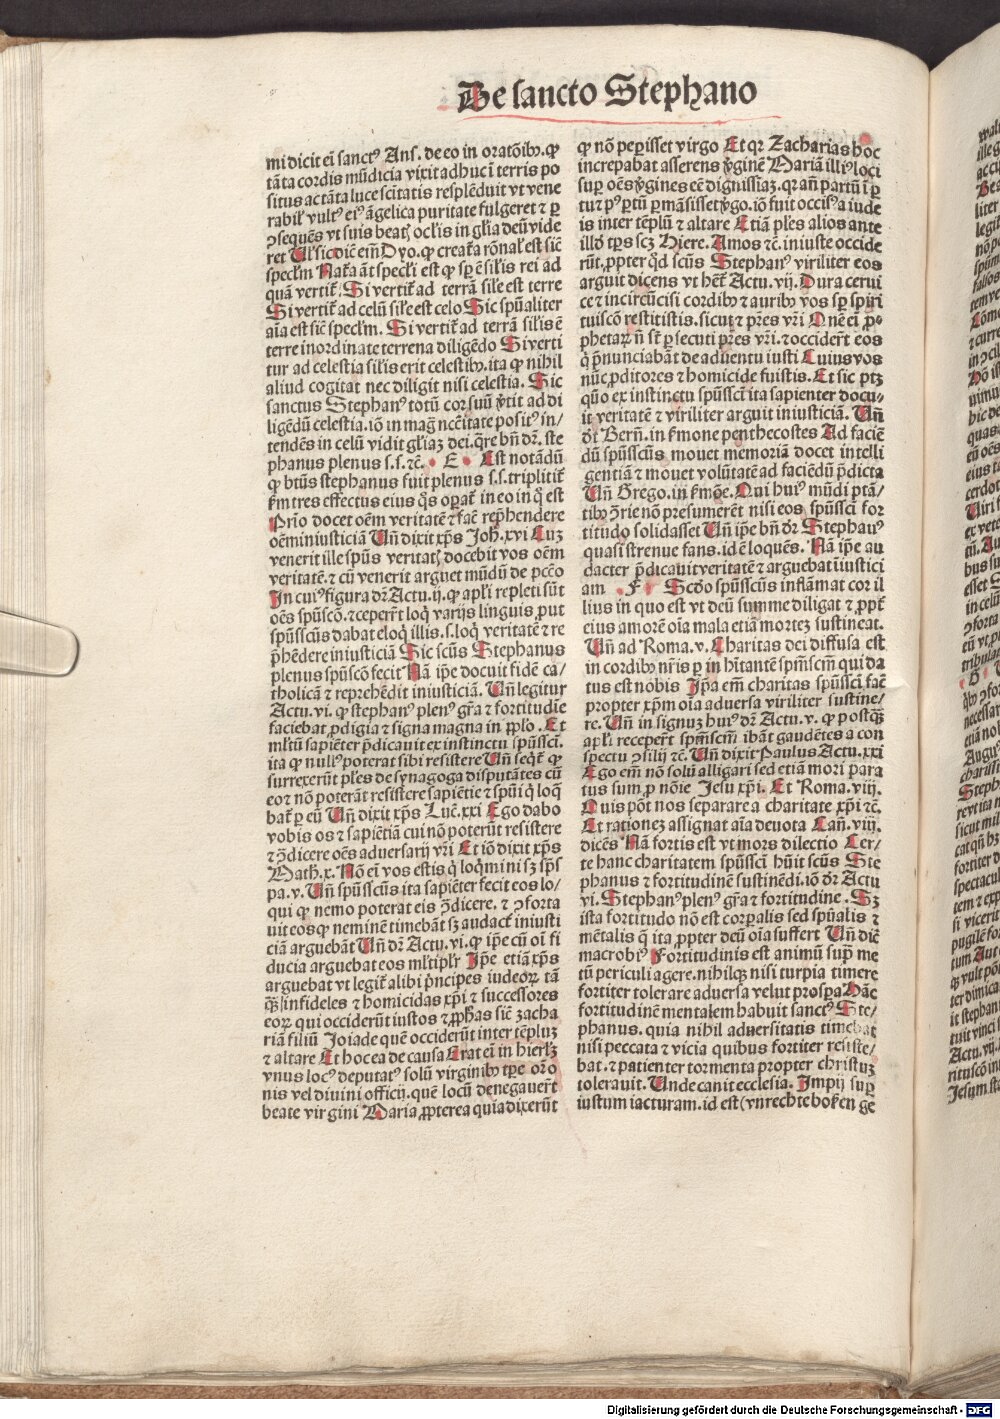 De sancto Stephano
mi dicit eī sanctꝰ Ans. de eo in oratōibꝫ. ꝙ
tāta cordis mūdicia vixit adhuc ī terris po
situs ac tāta luce scītatis resplēduit vt vene
rabilꝭ vultꝰ eiꝰ āgelica puritate fulgeret ⁊ ꝑ
ꝯsequēs vt suis beatꝭ oclīs in gl̄ia deū vide
ret
specl̄m Nat̄a āt specl̄i est ꝙ sꝑ ē sil̄is rei ad
quā vertit̄. Si vertit̄ ad terrā sil̄e est terre
Si vertit̄ ad celū sil̄e est celo Sic spūaliter
aīa est sic̄ specl̄m. Si vertit̄ ad terrā sil̄is ē
terre inordinate terrena diligēdo Si verti
tur ad celestia sil̄is erit celestibꝫ. ita ꝙ nihil
aliud cogitat nec diligit nisi celestia. Sic
sanctus Stephanꝰ totū cor suū v̄tit ad di
ligēdū celestia. iō in maḡ nc̄citate positꝰ in/
tendēs in celū vidit gl̄iaꝫ dei. q̄re bn̄ dr̄. ste
phanus plenus s.s. ⁊c̄. E. Est notādū
ꝙ btūs stephanus fuit plenus s.s. tripliciť
ẜm tres effectus eius q̄s oꝑat̄ in eo in q̄ est
Prīo docet oēm veritatē ⁊ fac̄ rep̄hendere
oēm iniusticiā Vn̄ dixit xp̄s Joh. xvi Cuꝫ
venerit ille spūs veritatꝭ docebit vos oēm
veritatē. ⁊ cū venerit arguet mūdū de pcc̄o
In cuiꝰ figura dr̄ Actu. ij. ꝙ apl̄i repleti sūt
oēs spūscō. ⁊ ceper̄t loq̄ varijs linguis ꝓut
spūsscūs dabat eloq̄ illis. s. loq̄ veritatē ⁊ re
p̄hēdere iniusticiā Sic scūs Stephanus
plenus spūscō fecit Nā ip̄e docuit fidē ca/
tholicā ⁊ reprehēdit iniusticiā. Vn̄ legitur
Actu. vi. ꝙ stephanꝰ plenꝰ gr̄a ⁊ fortitudie
faciebat ꝓdigia ⁊ signa magna in ꝓplo. Et
ml̄tū sapiēter p̄dicauit ex instinctu spūssci.
ita ꝙ nullꝰ poterat sibi resistere Vn̄ seqt̄ ꝙ
surrexerūt pl̄es de synagoga disputātes cū
eo ⁊ nō poterāt resistere sapiētie ⁊ spūi q̄ loq̄
bat̄ ꝑ eū Vn̄ dixit xp̄s Luc̄. xxi Ego dabo
vobis os ⁊ sapiētiā cui nō poterūt resistere
⁊ ꝯ̄dicere oēs aduersarij vr̄i Et iō dixit xp̄s
Math. x. Nō eī vos estis q̄ loq̄mini sꝫ sp̄s
pa. v. Vn̄ spūsscūs ita sapiēter fecit eos lo/
qui ꝙ nemo poterat eis ꝯ̄dicere. ⁊ ꝯforta
uit eos ꝙ neminē timebāt sꝫ audact̄ iniusti
ciā arguebāt Vn̄ dr̄ Actu. vi. ꝙ ip̄e cū oī fi
ducia arguebat eos ml̄tipl̄r Ip̄e etiā xp̄s
arguebat vt legit̄ alibi p̄ncipes iudeoꝝ tā
qꝫ̄ infideles ⁊ homicidas xp̄i ⁊ successores
eoꝝ qui occiderūt iustos ⁊ ꝓph̄as sic̄ zacha
riā filiū Joiade quē occiderūt inter tēpluꝫ
⁊ altare Et hoc ea de causa Erat eī in hierl̄ꝫ
vnus locꝰ deputatꝰ solū virginibꝫ tꝑe oro
nis vel diuini officij. quē locū denegauer̄t
beate virgini Maria ꝓpterea quia dixerūt
ꝙ nō peperisset virgo Et qꝛ Zacharias hoc
increpabat asserens v̄ginē Mariā illiꝰ loci
suꝑ oēs v̄gines eē dignissiaꝫ. qꝛ an̄ partū ī ꝑ
tu ⁊ pꝰ ꝑtū ꝑmāsisset v̄go. iō fuit occisꝰ a iude
is inter tēplū ⁊ altare Etiā pl̄es alios ante
illd̄ tp̄s scꝫ Hiere. Amos ⁊c̄. iniuste occide
rūt. ꝓpter qd̄ scūs Stephanꝰ viriliter eos
arguit dicens vt het̄ Actu. vij. Dura cerui
ce ⁊ incircūcisi cordibꝫ ⁊ auribꝫ vos sꝑ spiri
tui scō restitistis. sicut ⁊ pr̄es vr̄i Quē eī ꝓ
phetaꝝ n̄ st̄ ꝑsecuti pr̄es vr̄i. ⁊ occider̄t eos
q̄ p̄nunciabāt de aduentu iusti Cuius vos
nūc ꝓditores ⁊ homicide fuistis. Et sic ptꝫ
quō ex instinctu spūssci ita sapienter docu-
it veritatē ⁊ viriliter arguit iniusticiā. Vn̄
dt̄ Bern̄. in ẜmone penthecostes Ad faciē
dū spūsscūs mouet memoriā docet intelli
gentiā ⁊ mouet volūtatē ad faciēdū p̄dicta
Vn̄ Grego. in ẜmōe. Qui huiꝰ mūdi ptā/
tibꝫ ꝯ̄rie nō presumerēt nisi eos spūssci for
titudo solidasset Vn̄ ip̄e bn̄ dr̄ Stephanꝰ
quasi strenue fans. id ē loquēs. Nā ip̄e au
dacter p̄dicauit veritatē ⁊ arguebat iiustici
am. F Scd̄o spūsscūs inflāmat cor il
lius in quo est vt deū summe diligat ⁊ ꝓpt̄
eius amorē oīa mala etiā morteꝫ sustineat.
Vn̄ ad Roma. v. Charitas dei diffusa est
in cordibꝫ nr̄is ꝑ inhītantē spm̄scm̄ qui da
tus est nobis Ip̄a em̄ charitas spūssci fac̄
propter xp̄m oīa aduersa viriliter sustine/
re. Vn̄ in signuꝫ huiꝰ dr̄ Actu. v. ꝙ postqꝫ̄
apl̄i receper̄t spm̄scm̄ ibāt gaudētes a con
spectu ꝯsilij ⁊c̄. Vn̄ dixit Paulus Actu. xxi
Ego em̄ nō solū alligari sed etiā mori para
tus sum ꝓ nōie Jesu xp̄i. Et Roma. viij.
Quis pōt nos separare a charitate xp̄i ⁊c̄.
Et rationeꝫ assignat aīa deuota Can̄. viij.
dicēs Nā fortis est vt mors dilectio Cer/
te hanc charitatem spūssci hūit scūs Ste
phanus ⁊ fortitudinē sustinēdi. iō dr̄ Actu
vi. Stephanꝰ plenꝰ gr̄a ⁊ fortitudine. Sꝫ
ista fortitudo nō est corꝑalis sed spūalis ⁊
mētalis q̄ ita ꝓpter deū oīa suffert Vn̄ dic̄
macrobiꝰ Fortitudinis est animū supra me
tū periculi agere. nihilqꝫ nisi turpia timere
fortiter tolerare aduersa velut prosꝑa Hāc
fortitudinē mentalem habuit sanctꝰ Ste/
phanus. quia nihil aduersitatis timebat
nisi peccata ⁊ vicia quibus fortiter resiste/
bat. ⁊ patienter tormenta propter christuꝫ
tolerauit. Unde canit ecclesia. Impij suꝑ
iustum iacturam. id est (vnrechte boken ge
Digitalisierung gefördert durch die Deutsche Forschungsgemeinschaft - DFG